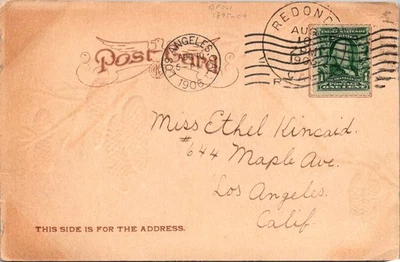 Post Card
LOS ANGELES
1906
REDONDO
AUG
CAL
POSTAGE
ONE CENT
Miss Ethel Kincaid.
#644 Maple Ave.
Los Angeles.
Calif.
THIS SIDE IS FOR THE ADDRESS.